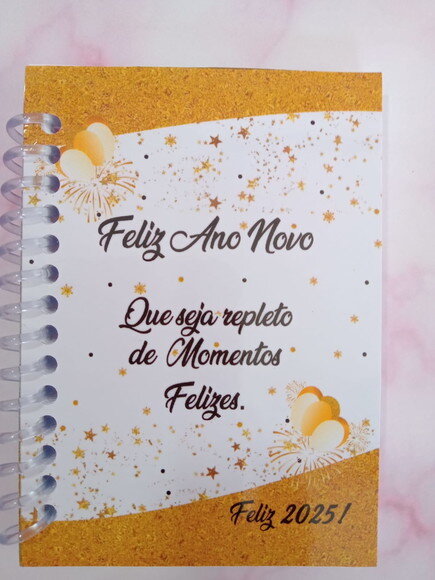 Feliz Ano Novo
Que seja repleto
de Momentos
Felizes.
Feliz 2025!